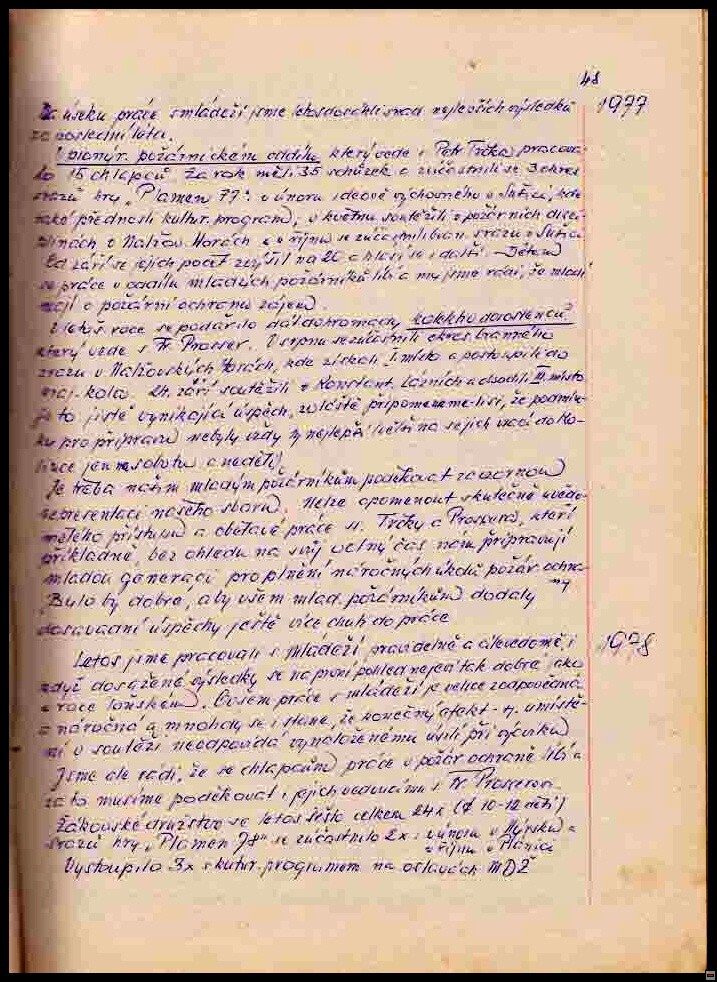 48
Na úseku práce s mládeží jsme letos dosáhli snad nejlepších výsledků 1977
za poslední léta.
V pionýr. požárnickém oddílu, který vede s. Petr Trčka pracova-
lo 15 chlapců. Za rok měli 35 schůzek a zúčastnili se 3 okres.
srazů hry „Plamen 77": v únoru ideově výchovného v Sušici, kde
také přednesli kultur. program, v květnu soutěžili v požárních disci-
plínách v Nalžov. Horách a v říjnu se zúčastnili bran. srazu v Sušici
Od září se jejich počet zvýšil na 20 a hlásí se i další. Dětem
se práce v oddílu mladých požárníků líbí a my jsme rádi, že mladí
mají o požární ochranu zájem.
V letoš. roce se podařilo dát dohromady kolektiv dorostenců,
který vede s. Fr. Prosser. V srpnu se zúčastnili okres. branného
srazu v Nalžovských Horách, kde získali 1. místo a postoupili do
kraj. kola. 24. září soutěžili v Konstant. Lázních a obsadili III. místo
Je to jistě vynikající úspěch, zvláště připomeneme-li si, že podmín-
ky pro přípravu nebyly vždy ty nejlepší (většina se jich vrací do Ko-
lince jen na sobotu a neděli).
Je třeba našim mladým požárníkům poděkovat za vzornou
reprezentaci našeho sboru. Nelze opomenout skutečně uvědo-
mělého přístupu a obětavé práce s. Trčky a Prossera, kteří
příkladně, bez ohledu na svůj volný čas nám připravují
mladou generaci pro plnění náročných úkolů požár. ochra-
ny
Bylo by dobré, aby všem mlad. požárníkům dodaly
dosavadní úspěchy ještě více chuti do práce
Letos jsme pracovali s mládeží pravidelně a cílevědomě, i 1978
když dosažené výsledky se na první pohled nejeví tak dobré, jako
v roce loňském. Ovšem práce s mládeží je velice zodpovědná
a náročná a mnohdy se i stane, že konečný efekt - tj. umístě-
ní v soutěži neodpovídá vynaloženému úsilí při výcviku
Jsme ale rádi, že se chlapcům práce v požár. ochraně líbí a
za to musíme poděkovat i jejich vedoucímu s. Fr. Prosserovi.
Žákovské družstvo se letos sešlo celkem 24x (Ø 10-12 dětí)
srazů hry „Plamen 78" se zúčastnilo 2x: v únoru v Nýrsku a
v říjnu v Plánici
Vystoupilo 3x s kultur. programem na oslavách MDŽ